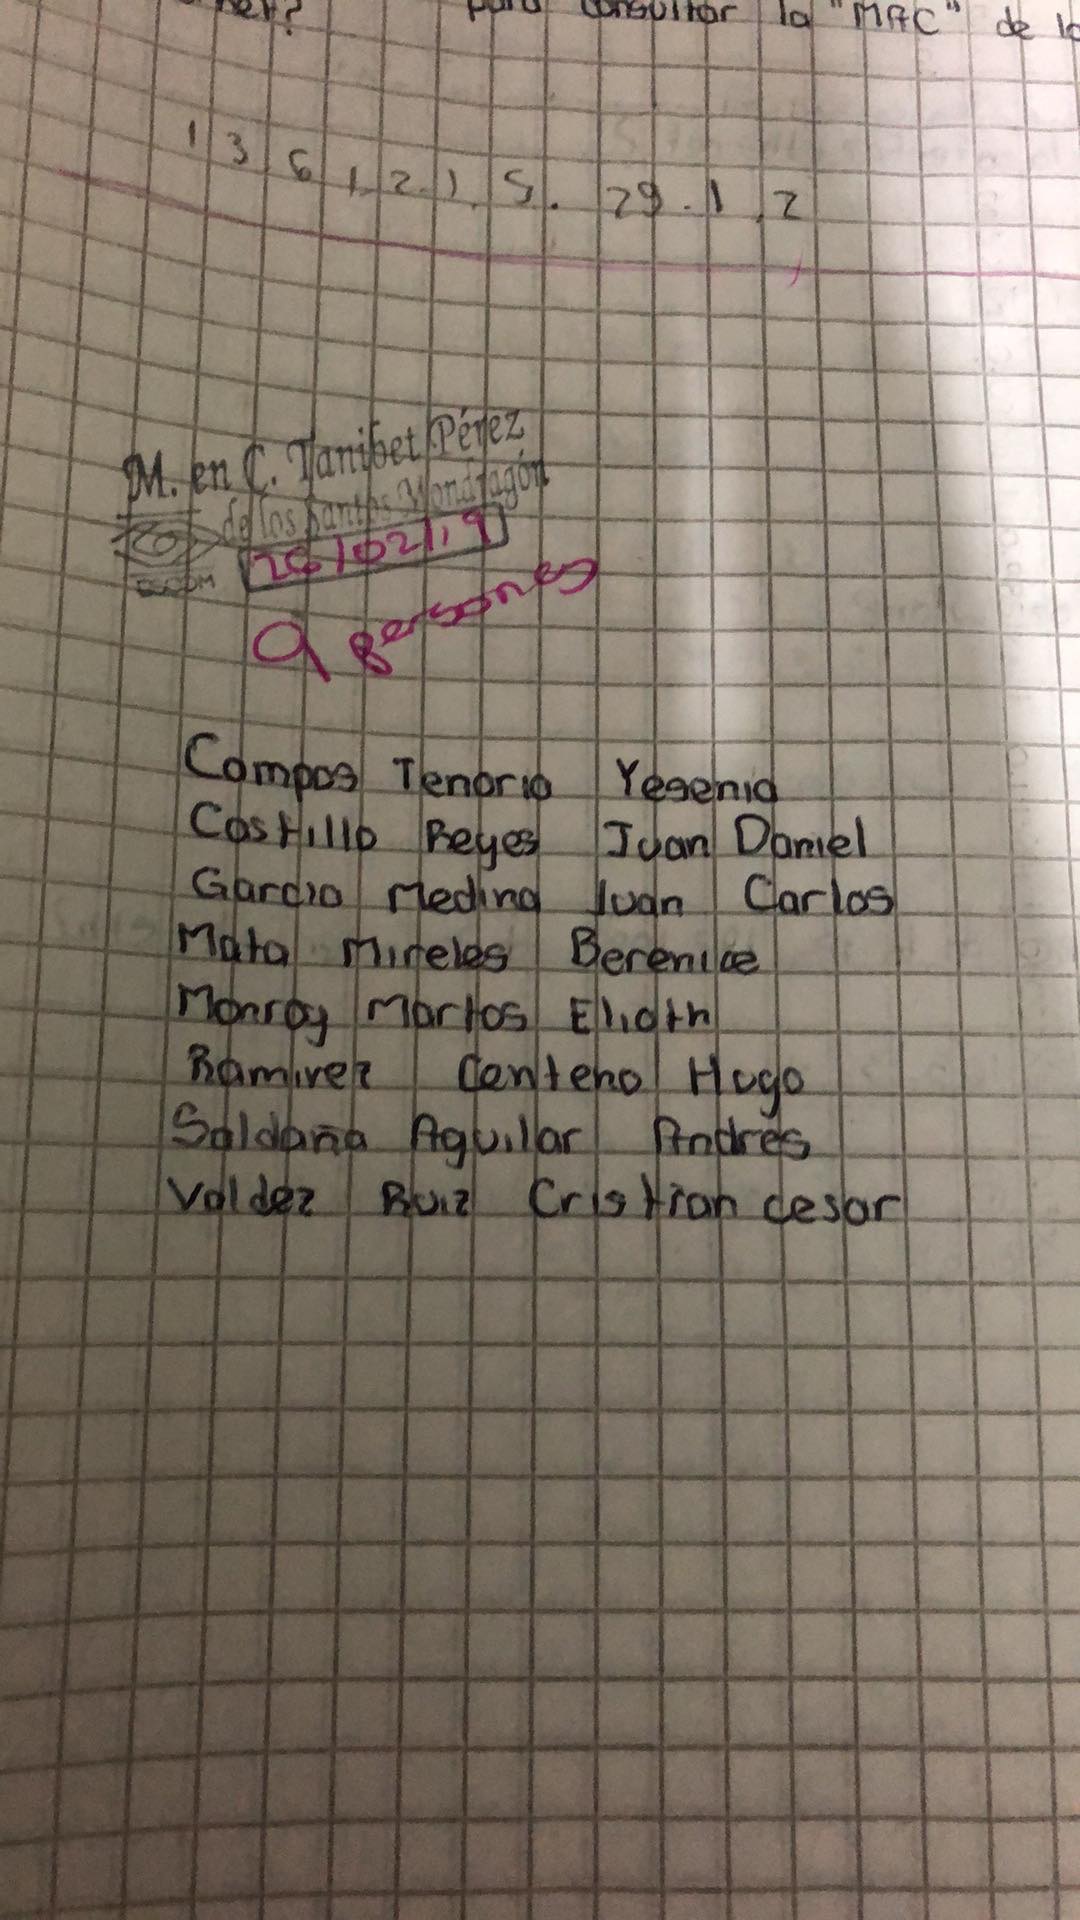 para consultar la "MAC" de
1 3 6 1.2.1.5. 29.1.2
M. en C. Tanibet Pérez
de los Santos Mondragón
ESCOM
26/02/19
9 personas
Campos Tenorio Yesenia
Castillo Reyes Juan Daniel
García Medina Juan Carlos
Mata Mireles Berenice
Monroy Martos Elioth
Ramirez Centeno Hugo
Saldaña Aguilar Andrés
Valdez Ruiz Cristian cesar